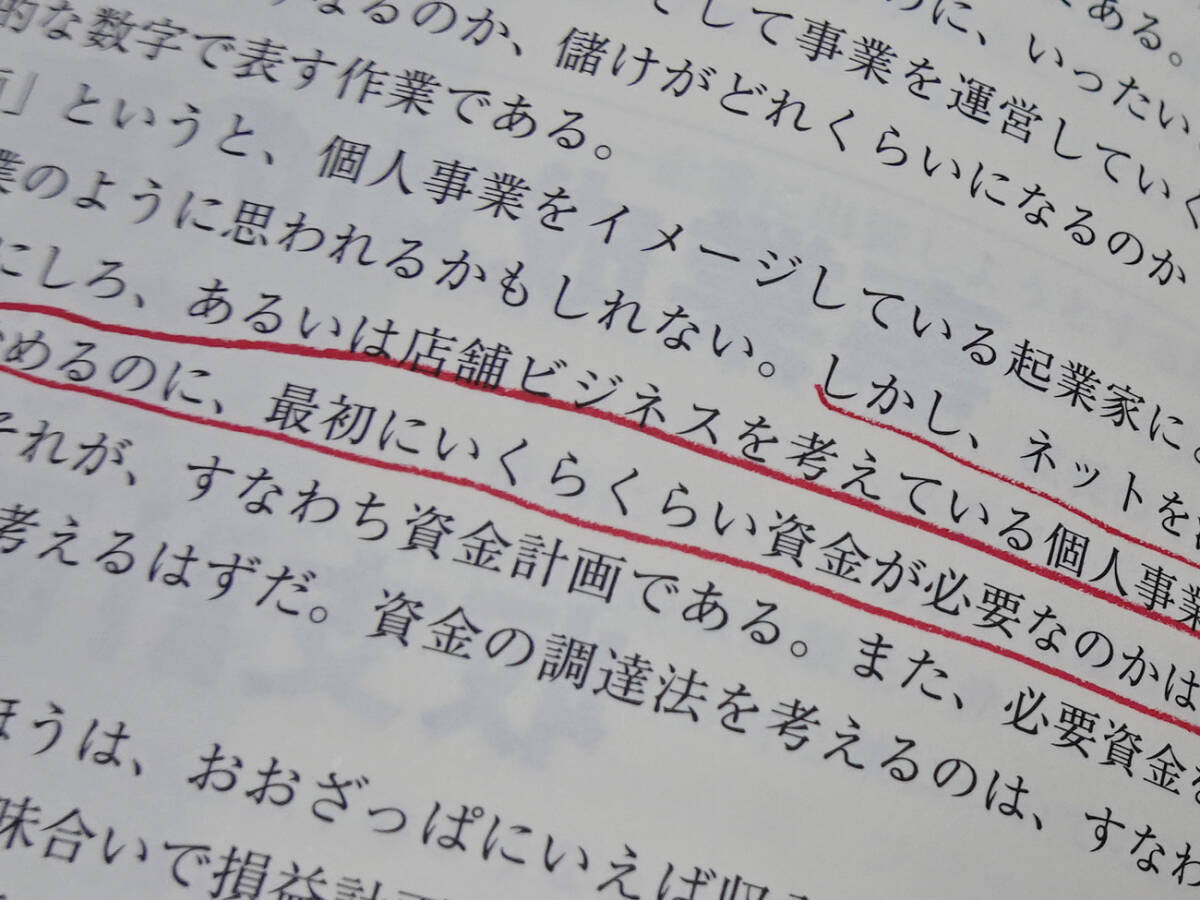 ある。
に、いったい
そして事業を運営していく
なるのか、儲けがどれくらいになるのか
的な数字で表す作業である。
」というと、個人事業をイメージしている起業家に
業のように思われるかもしれない。しかし、ネットを
にしろ、あるいは店舗ビジネスを考えている個人事業
めるのに、最初にいくらくらい資金が必要なのかは
それが、すなわち資金計画である。また、必要資金を
考えるはずだ。資金の調達法を考えるのは、すなわ
ほうは、おおざっぱにいえば収
味合いで損益計画